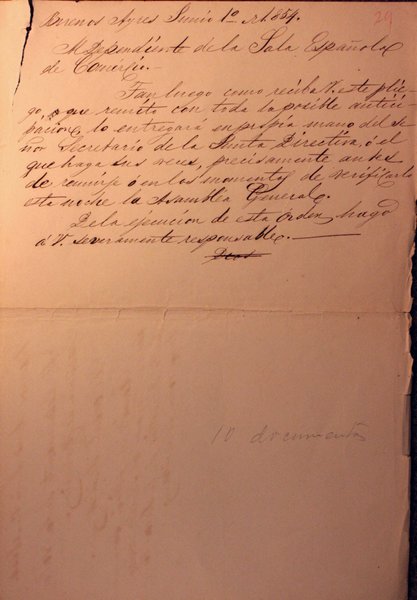 Buenos Ayres Junio 1º de 1854.
29
Al Dependiente de la Sala Española
de Comercio.
Tan luego como reciba V. este plie-
go, que remito con toda la posible antici-
pacion, lo entregará en propia mano del se-
ñor Secretario de la Junta Directiva, ó el
que haga sus veces, precisamente antes
de reunirse ó en los momentos de verificarlo
esta noche la Asamblea General.
De la ejecucion de esta órden, hago
á V. severamente responsable.
10 documentos